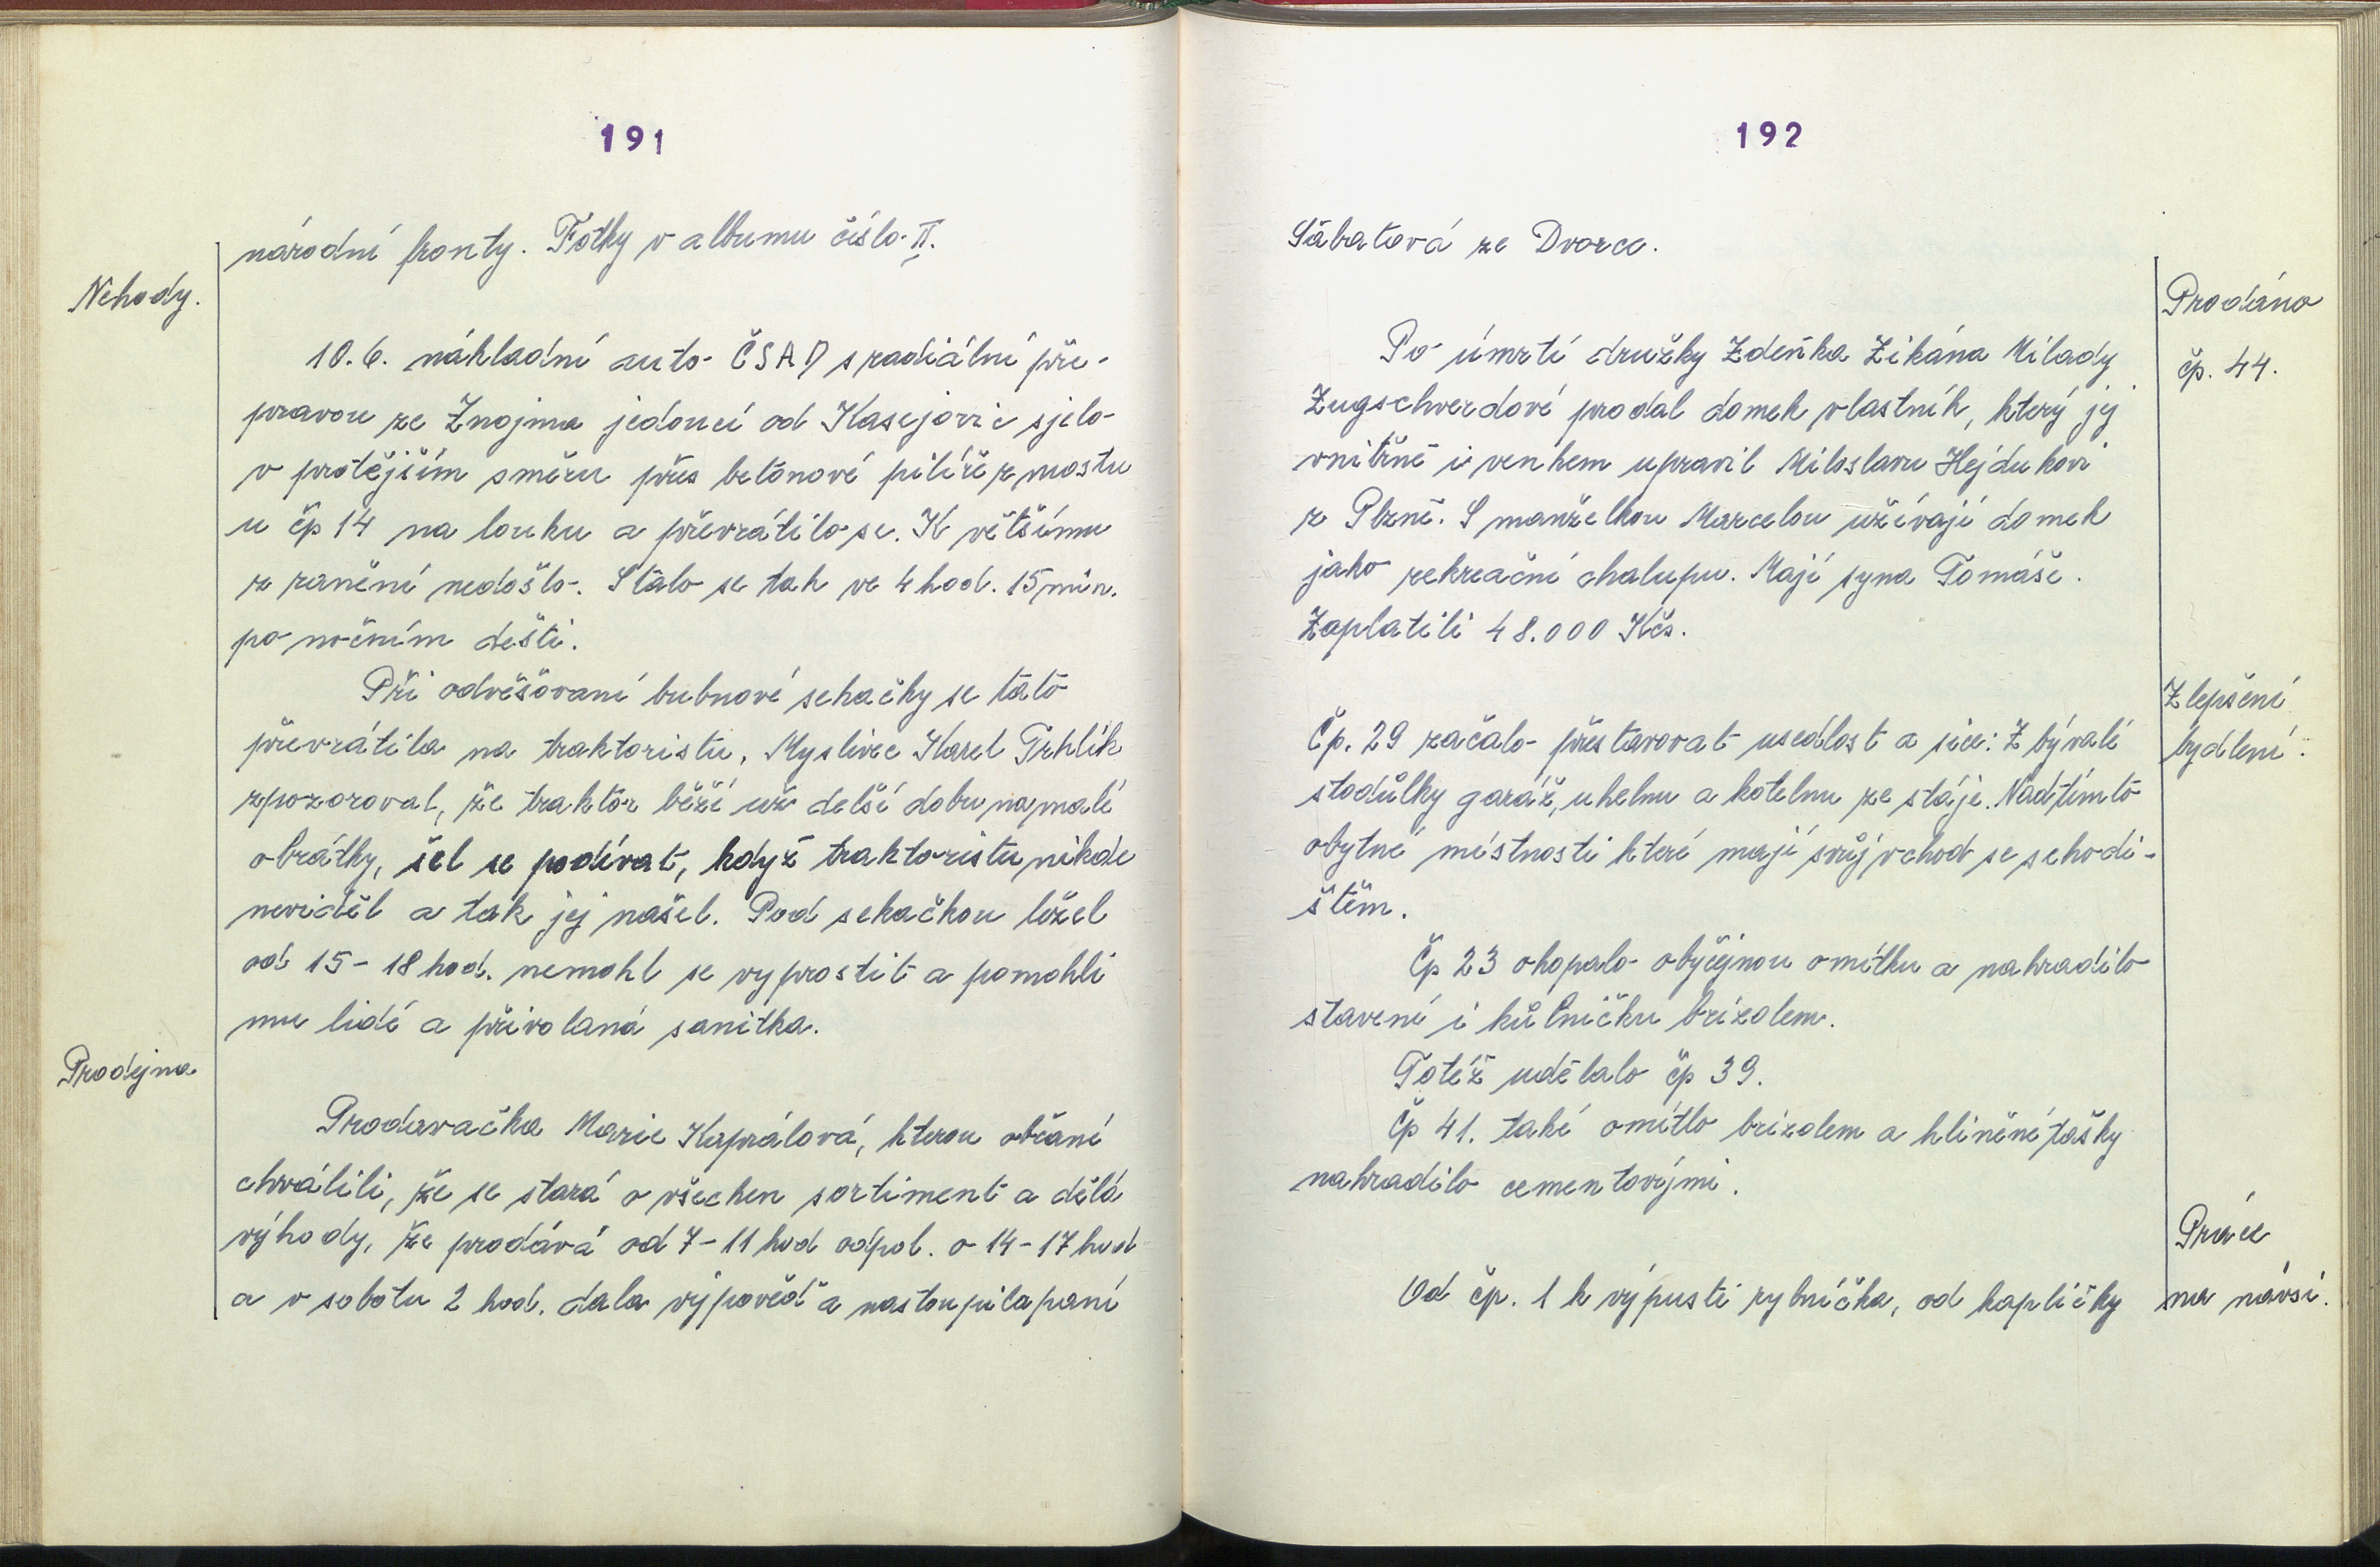 191
národní fronty. Fotky v albumu číslo II.
Nehody.
10.6. nákladní auto ČSAD s radiální pře-
pravou ze Znojma jedoucí od Kasejovic sjelo
v protějším směru přes betonové pilíře z mostu
u čp 14 na louku a převrátilo se. K většímu
z ranění nedošlo. Stalo se tak ve 4 hod. 15 min.
po nočním dešti.
Při odvěšování bubnové sekačky se tato
převrátila na traktoristu. Myslivec Karel Trhlík
zpozoroval, že traktor běží už delší dobu na malé
obrátky, šel se podívat, když traktoristu nikde
neviděl a tak jej našel. Pod sekačkou ležel
od 15-18 hod. nemohl se vyprostit a pomohli
mu lidé a přivolaná sanitka.
Prodejna
Prodavačka Marie Kaprálová, kterou občané
chválili, že se stará o všechen sortiment a dělá
výhody, že prodává od 7-11 hod odpol. o 14-17 hod
a v sobotu 2 hod. dala výpověď a nastoupila paní
192
Sábatová ze Dvorce.
Prodáno
čp. 44.
Po úmrtí družky Zdeňka Zikána Milady
Zugschverdové prodal domek vlastník, který jej
vnitřně i venkem upravil Miloslavu Hejdukovi
z Plzně. S manželkou Marcelou užívají domek
jako rekreační chalupu. Mají syna Tomáše.
Zaplatili 48.000 Kčs.
Zlepšení
bydlení.
Čp. 29 začalo přestavovat usedlost a sice: Z bývalé
stodůlky garáž, uhelnu a kotelnu ze stáje. Nad tímto
obytné místnosti které mají svůj vchod se schodi-
štěm.
Čp 23 okopalo obyčejnou omítku a nahradilo
stavení i kůlničku brizolem.
Totéž udělalo čp 39.
Čp 41. také omítlo brizolem a hliněné tašky
nahradilo cementovými.
Práce
na návsi.
Od čp. 1 k výpusti rybníčka, od kapličky